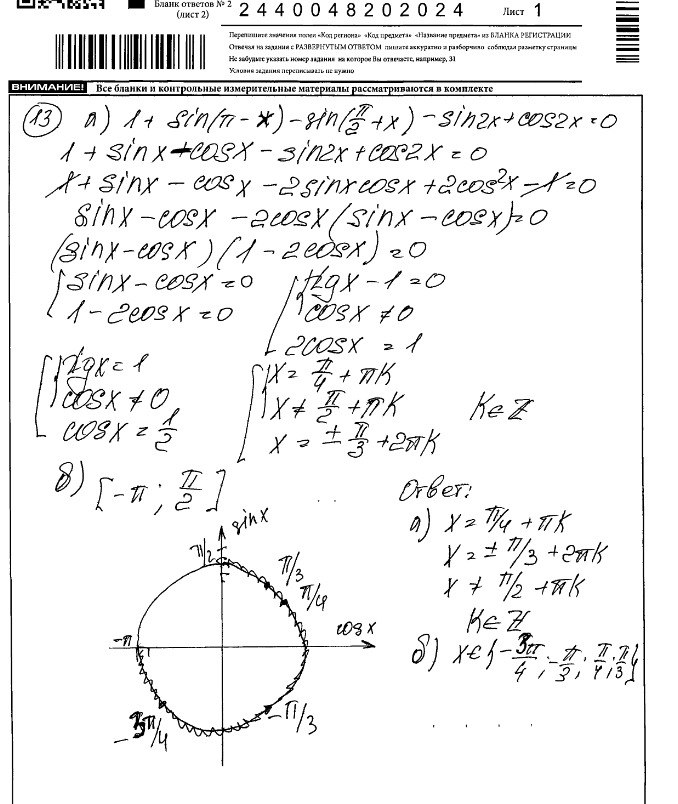 Бланк ответов № 2
(лист 2)
2440048202024
Лист 1
Перепишите значения полей «Код региона» «Код предмета» «Название предмета» из БЛАНКА РЕГИСТРАЦИИ
Отвечая на задания с РАЗВЕРНУТЫМ ОТВЕТОМ пишите аккуратно и разборчиво соблюдая разметку страницы
Не забудьте указать номер задания на которое Вы отвечаете, например, 31
Условия задания переписывать не нужно
ВНИМАНИЕ! Все бланки и контрольные измерительные материалы рассматриваются в комплекте
13 а) 1 + sin(π - x) - sin(π/2 + x) - sin2x + cos2x = 0
1 + sinx - cosx - sin2x + cos2x = 0
1 + sinx - cosx - 2sinxcosx + 2cos²x - 1 = 0
sinx - cosx - 2cosx(sinx - cosx) = 0
(sinx - cosx)(1 - 2cosx) = 0
[ sinx - cosx = 0
1 - 2cosx = 0
[ { tgx - 1 = 0
cosx ≠ 0
2cosx = 1
[ { tgx = 1
cosx ≠ 0
cosx = 1/2
[ { x = π/4 + πK
x ≠ π/2 + πK
x = ± π/3 + 2πK
K∈Z
б) [-π; π/2]
sinx
π/2
π/3
π/4
cosx
-π
-π/3
-3π/4
Ответ:
а) x = π/4 + πK
x = ± π/3 + 2πK
x ≠ π/2 + πK
K∈Z
б) x∈{-3π/4; -π/3; π/4; π/3}